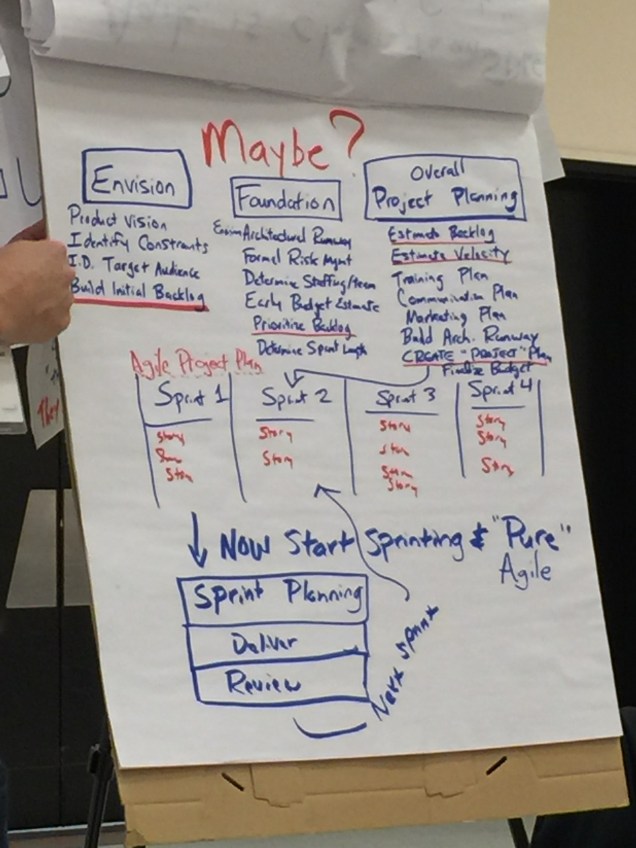 Maybe?
Envision
Product Vision
Identify Constraints
I.D. Target Audience
Build Initial Backlog
Foundation
Architectural Runway
Formal Risk Mgmt
Determine Staffing/team
Early Budget Estimate
Prioritize Backlog
Determine Sprint Length
Overall
Project Planning
Estimate Backlog
Estimate Velocity
Training Plan
Communication Plan
Marketing Plan
Build Arch. Runway
CREATE "PROJECT" Plan
Finalize Budget
Agile Project Plan
Sprint 1
Story
Story
Sprint 2
Story
Story
Sprint 3
Story
Story
Story
Story
Sprint 4
Story
Story
Story
Now Start Sprinting & "Pure"
Agile
Sprint Planning
Deliver
Review
Next Sprint